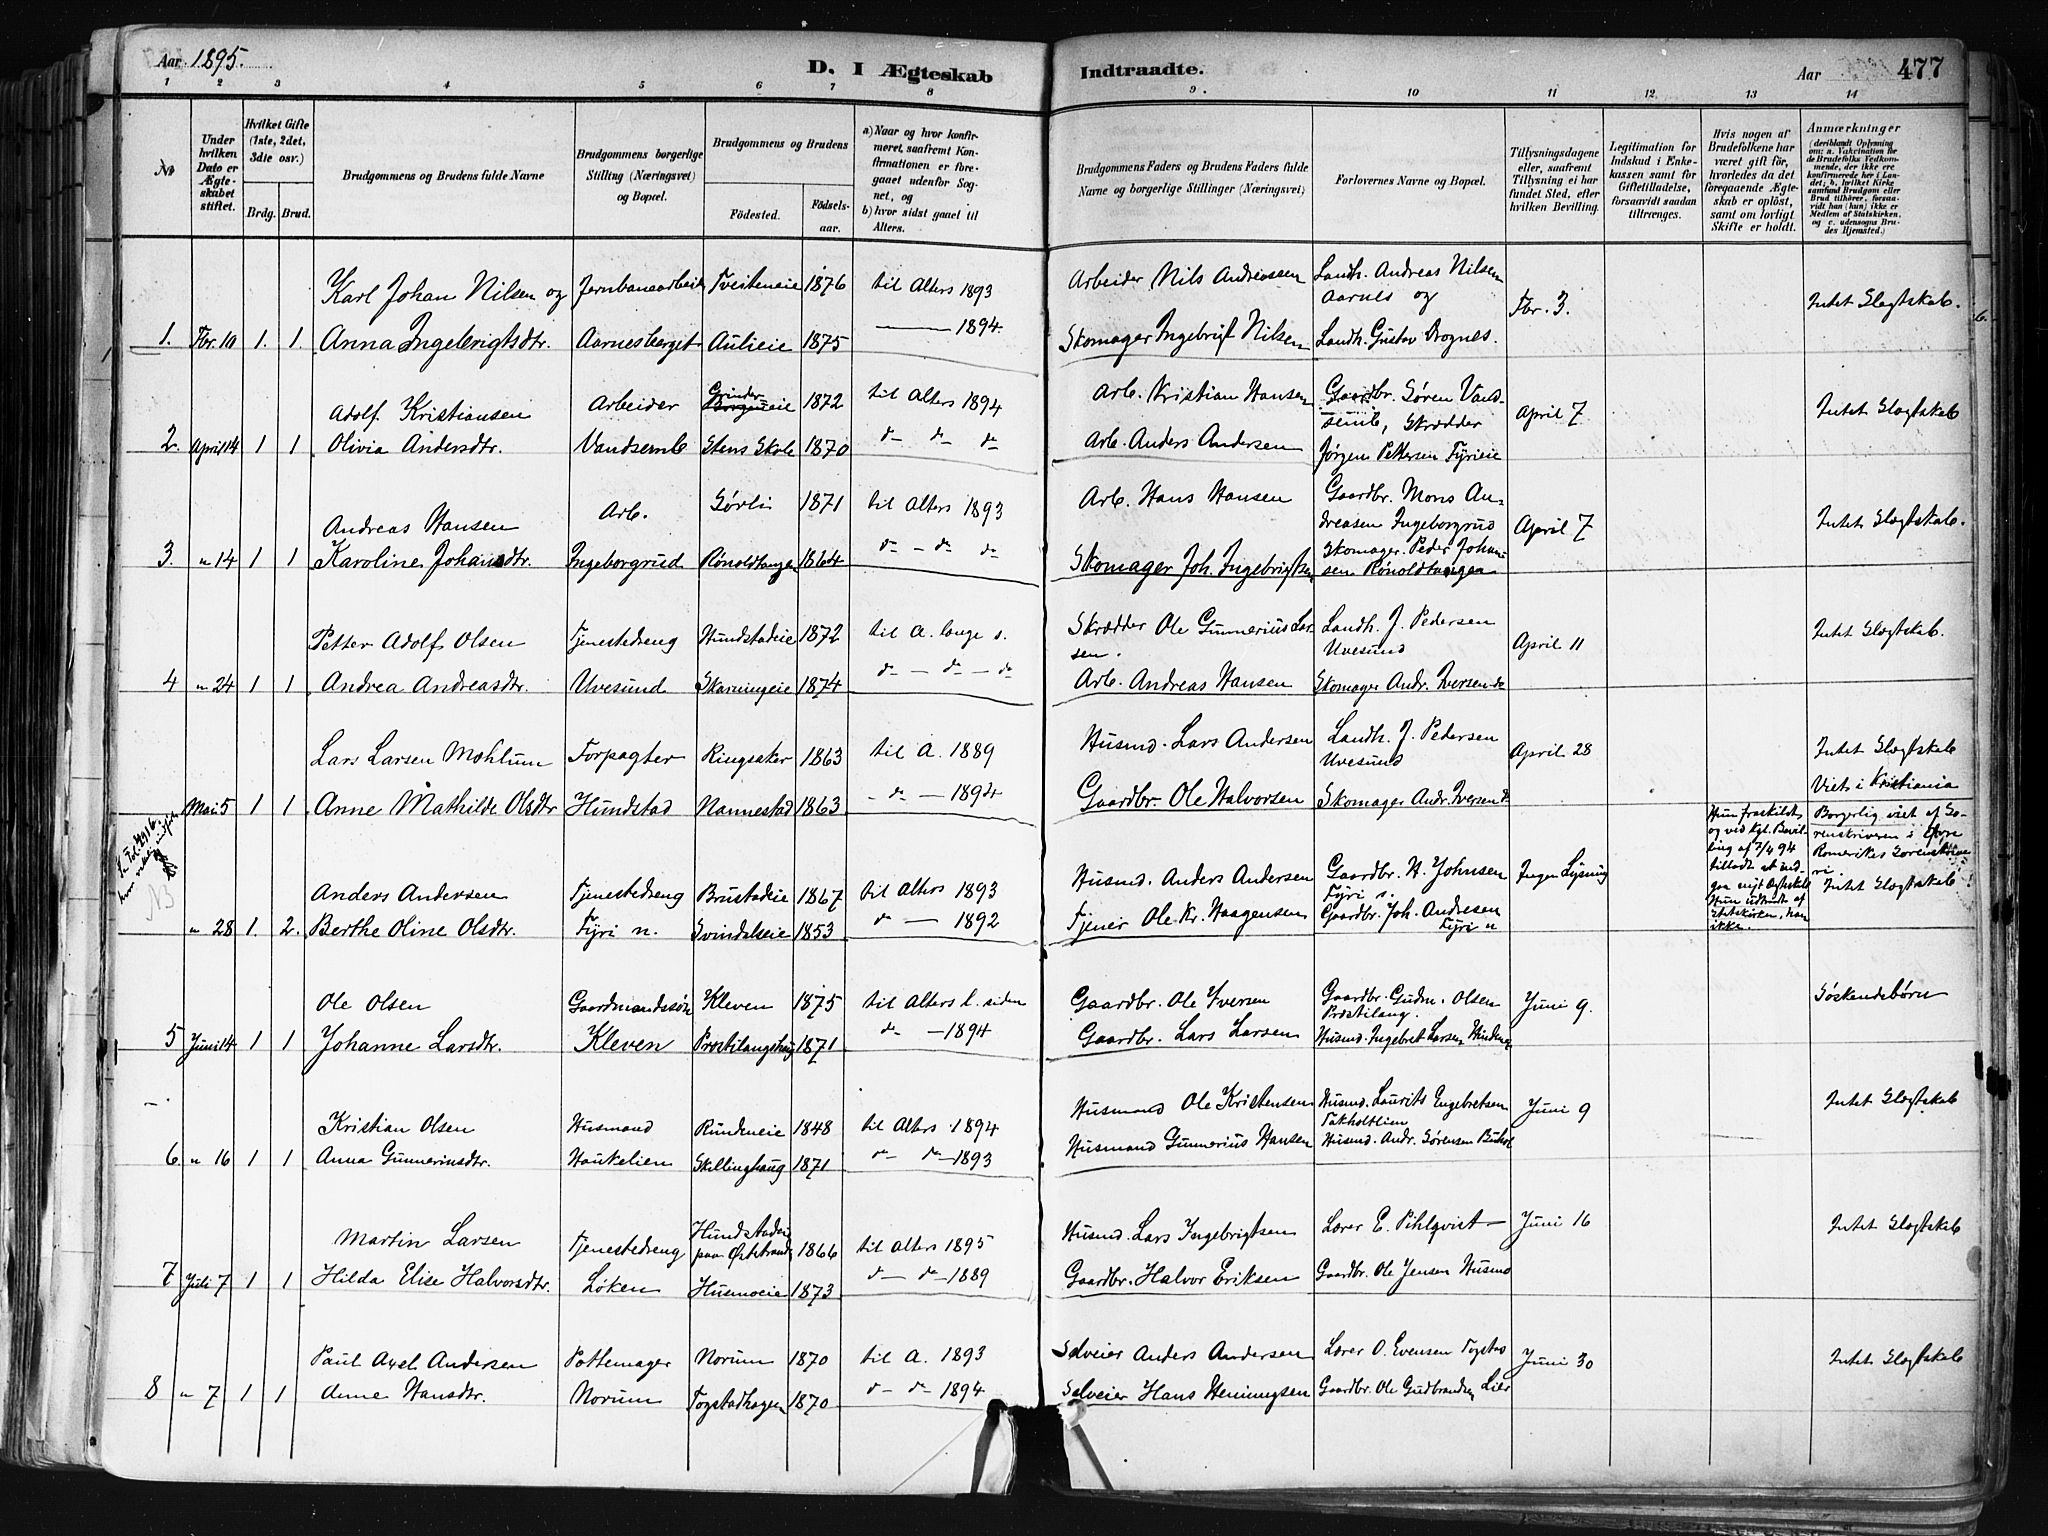 Aar 1895.
D. I Ægteskab Indtraadte.
Aar 477
1 2 3 4 5 6 7 8 9. 10 11 12 13 14
No
Under hvilken Dato er Ægteskabet stiftet.
Hvilket Gifte (1ste, 2det, 3die osv.)
Brdg. Brud.
Brudgommens og Brudens fulde Navne
Brudgommens borgerlige Stilling (Næringsvei) og Bopæl.
Brudgommens og Brudens
Fødested.
Fødselsaar.
a) Naar og hvor konfirmeret, saafremt Konfirmationen er foregaaet udenfor Sognet, og
b) hvor sidst gaaet til Alters.
Brudgommens Faders og Brudens Faders fulde Navne og borgerlige Stillinger (Næringsvei)
Forlovernes Navne og Bopæl.
Tillysningsdagene eller, saafremt Tillysning ei har fundet Sted, efter hvilken Bevilling.
Legitimation for Indskud i Enkekassen samt for Giftetilladelse, forsaavidt saadan tiltrænges.
Hvis nogen af Brudefolkene har været gift før, hvorledes da det foregaaende Ægteskab er opløst, samt om lovligt Skifte er holdt.
Anmærkninger (deriblandt Oplysning om: a. Vakcination for de Brudefolks Vedkommende, der ikke ere konfirmerede her i Landet; b. hvilket Kirkesamfund Brudgom eller Brud tilhører, forsaavidt han (hun) ikke er Medlem af Statskirken, og c. udensogns Brudes Hjemsted.)
Karl Johan Nilsen og Jernbanearbeid Tveiteneie 1876 til Alters 1893 Arbeider Nils Andreassen Landh. Andreas Nilsen Aarnes og Fbr. 3. Intet Slegtskab.
1. Fbr. 10 1. 1. Anna Ingebrigtsdtr. Aarnesberget Aulieie 1875 — 1894. Skomager Ingebrigt Nilsen Landh. Gustav Drognes.
Adolf Kristiansen Arbeider Grindereie 1872 til Alters 1894 Arb. Kristian Hansen Gaardbr. Søren Vandsemb, Skrædder April 7 Intet Slegtskab
2. April 14 1 1 Olivia Andersdtr. Vandsemb Stens Skole 1870 do do do Arb. Anders Andersen Jørgen Pettersen Fyrieie
Andreas Hansen Arb. Sørli 1871 til Alters 1893 Arb. Hans Hansen Gaardbr. Mons Andreasen Ingeborgrud April 7 Intet Slegtskab.
3. " 14 1 1 Karoline Johansdtr. Ingeborgrud Rønoldtangen 1864 do — do do Skomager Joh. Ingebrigtsen Skomager Peder Johansen Rønoldtangen
Petter Adolf Olsen Tjenestedreng Hundstadeie 1872 til A. længe s. Skrædder Ole Gunnerius Larsen. Landh. J. Pedersen Uvesund April 11 Intet Slegtskab.
4 " 24 1 1 Andrea Andreasdtr. Uvesund Skarningeie 1874 do — do — do Arb. Andreas Hansen Skomager Andr. Iversen do
Lars Larsen Mohlum Forpagter Ringsaker 1863 til A. 1889 Husmd. Lars Andersen Landh. J. Pedersen Uvesund April 28 Intet Slegtskab
Mai 5 1 1 Anne Mathilde Olsdtr Hundstad Nannestad 1863 — do — 1894 Gaardbr. Ole Halvorsen Skomager Andr. Iversen do Viet i Kristiania
Anders Andersen Tjenestedreng Brustadeie 1867 til Alters 1893 Husmd. Anders Andersen Gaardbr. H. Johnsen Fyri s. Ingen Lysning Hun fraskildt og ved kgl. Bevilling af 7/4 94 tilladt at indgaa nyt Ægteskab Hun udtraadt af Statskirken, han ikke. Borgerlig viet af Sorenskriveren i Øvre Romerikes Sorenskriveri. Intet Slegtskab
" 28 1. 2. Berthe Oline Olsdtr. Fyri n. Svindaleie 1853 do — 1892 Tjener Ole Kr. Haagensen Gaardbr. Joh. Andresen Fyri n
Ole Olsen Gaardmandssøn Kleven 1875 til Alters l. siden Gaardbr. Ole Iversen Gaardbr. Gudm. Olsen Prestilang. Juni 9. Søskendebørn
5 Juni 14 1 1 Johanne Larsdtr. Kleven Prestilangshaug 1871 do — 1894 Gaardbr. Lars Larsen Husmd. Ingebret Larsen
Kristian Olsen Husmand Rundeneie 1848 til Alters 1894 Husmand Ole Kristensen Husmd. Laurits Engebretsen Takholtlien Juni 9 Intet Slegtskab
6. " 16 1 1 Anna Gunneriusdtr. Haukelien Skillinghaug 1871 do do — 1893 Husmand Gunnerius Hansen Husmd. Andr. Sørensen Buhol
Martin Larsen Tjenestedreng Hundstadeie paa Øststranden 1866 til Alters 1895 Husmd. Lars Ingebrigtsen Lærer E. Pihlqvist — Juni 16 Intet Slegtskab
7 Juli 7 1 1 Hilda Elise Halvorsdtr. Løken Husmoeie 1873 do — do — 1889 Gaardbr. Halvor Eriksen Gaardbr. Ole Jensen Husmo
Paul Axel Andersen Pottemager Norum 1870 til A. 1893 Selveier Anders Andersen Lærer O. Evensen Togsta Juni 30 Intet Slegtskab
8 " 7 1 1 Anne Hansdtr. Norum Togstadhagen 1870 do — do 1894 Selveier Hans Henningsen Gaardbr. Ole Gudbrandsen Lier